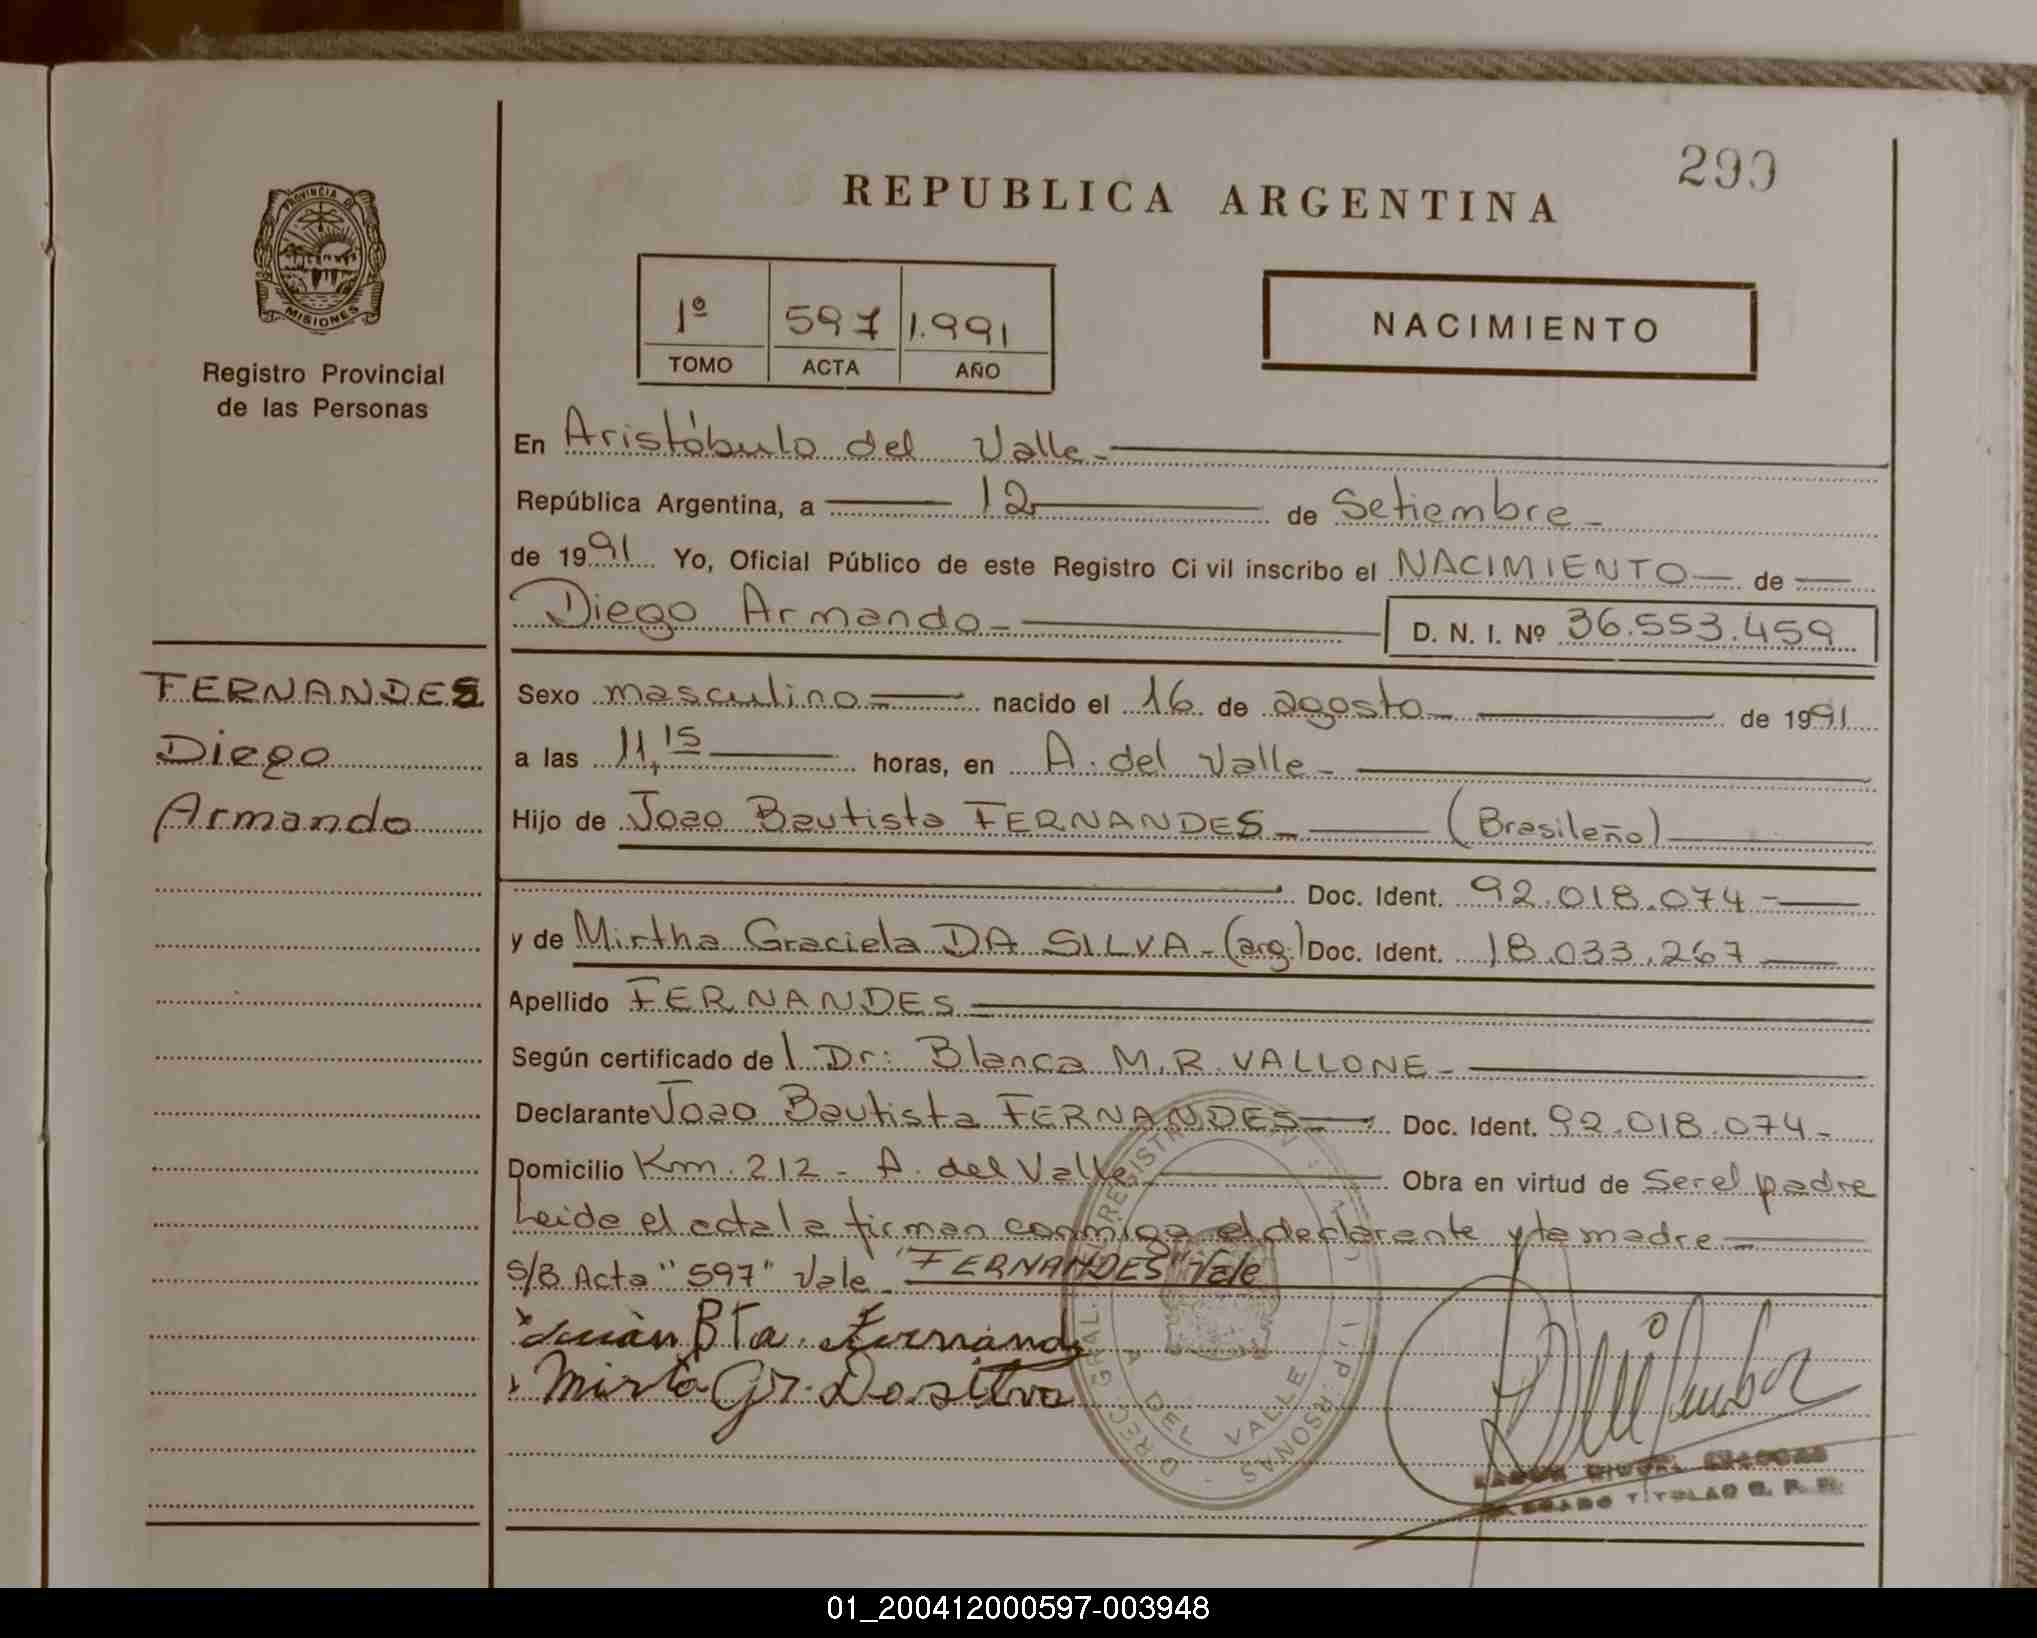 299
REPUBLICA ARGENTINA
PROVINCIA DE
MISIONES
Registro Provincial
de las Personas
1º 597 1.991
TOMO ACTA AÑO
NACIMIENTO
En Aristóbulo del Valle.-
República Argentina, a 12 de Setiembre -
de 1991 Yo, Oficial Público de este Registro Civil inscribo el NACIMIENTO de
Diego Armando - D. N. I. Nº 36.553.459
FERNANDES
Diego
Armando
Sexo masculino nacido el 16 de agosto - de 1991
a las 11,15 horas, en A. del Valle -
Hijo de Joao Bautista FERNANDES - (Brasileño)
Doc. Ident. 92.018.074 -
y de Mirtha Graciela DA SILVA - (arg.) Doc. Ident. 18.033.267
Apellido FERNANDES
Según certificado de l Dr: Blanca M.R. VALLONE -
Declarante Joao Bautista FERNANDES - Doc. Ident. 92.018.074 -
Domicilio Km. 212 - A. del Valle Obra en virtud de Ser el padre
Leida el acta la firman conmigo el declarante y la madre -
S/B Acta "597" Vale - "FERNANDES" Vale
Juan Bta. Fernand
Mirta Gr. Da silva
DIRECC GRAL. REGISTR
A DEL VALLE
TITULAR
01_200412000597-003948